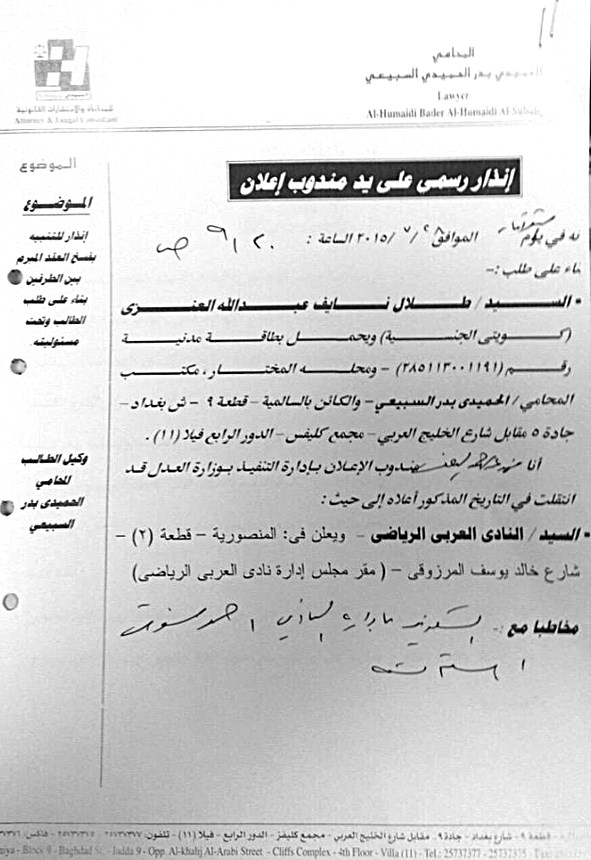 المحامي
الحميدي بدر الحميدي السبيعي
Lawyer
Al-Humaidi Bader Al-Humaidi Al-Subaiy
للمحاماة والإستشارات القانونية
Attorney & Leagal Consultant
إنذار رسمى على يد مندوب إعلان
الموضوع
الموضوع
إنذار للتنبيه
بفسخ العقد المبرم
بين الطرفين
بناء على طلب
الطالب وتحت
مسئوليته.
وكيل الطالب
المحامي
الحميدى بدر
السبيعي
نه في يوم الموافق ٢٨/ ٧ /٢٠١٥ الساعة : ٩/٢٠ ص
بناء على طلب :-
السيد / طلال نايف عبدالله العنزى
(كويتى الجنسية) ويحمل بطاقة مدنية
رقم (٢٨٥١١٣٠٠١١٩١) - ومحله المختار ، مكتب
المحامي / الحميدى بدر السبيعي - والكائن بالسالمية - قطعة ٩ - ش بغداد -
جادة ٥ مقابل شارع الخليج العربي - مجمع كليفس - الدور الرابع فيلا (١١) .
أنا مندوب الإعلان بإدارة التنفيذ بوزارة العدل قد
انتقلت في التاريخ المذكور أعلاه إلى حيث :
السيد / النادى العربى الرياضى - ويعلن فى: المنصورية - قطعة (٢) -
شارع خالد يوسف المرزوقى - ( مقر مجلس إدارة نادى العربى الرياضى)
مخاطبا مع :-
قطعة ٩ - شارع بغداد - جادة ٩ - مقابل شارع الخليج العربي - مجمع كليفز - الدور الرابع - فيلا (١١) - تلفون: ٢٥٧٣٧٣٧٧ - ٢٥٧٣٧٣٧٥ - فاكس:
Block 9 - Baghdad St. - Jadda 9 - Opp. Al-khalij Al-Arabi Street - Cliffs Complex - 4th Floor - Villa (11) - Tel.: 25737377 - 25737375